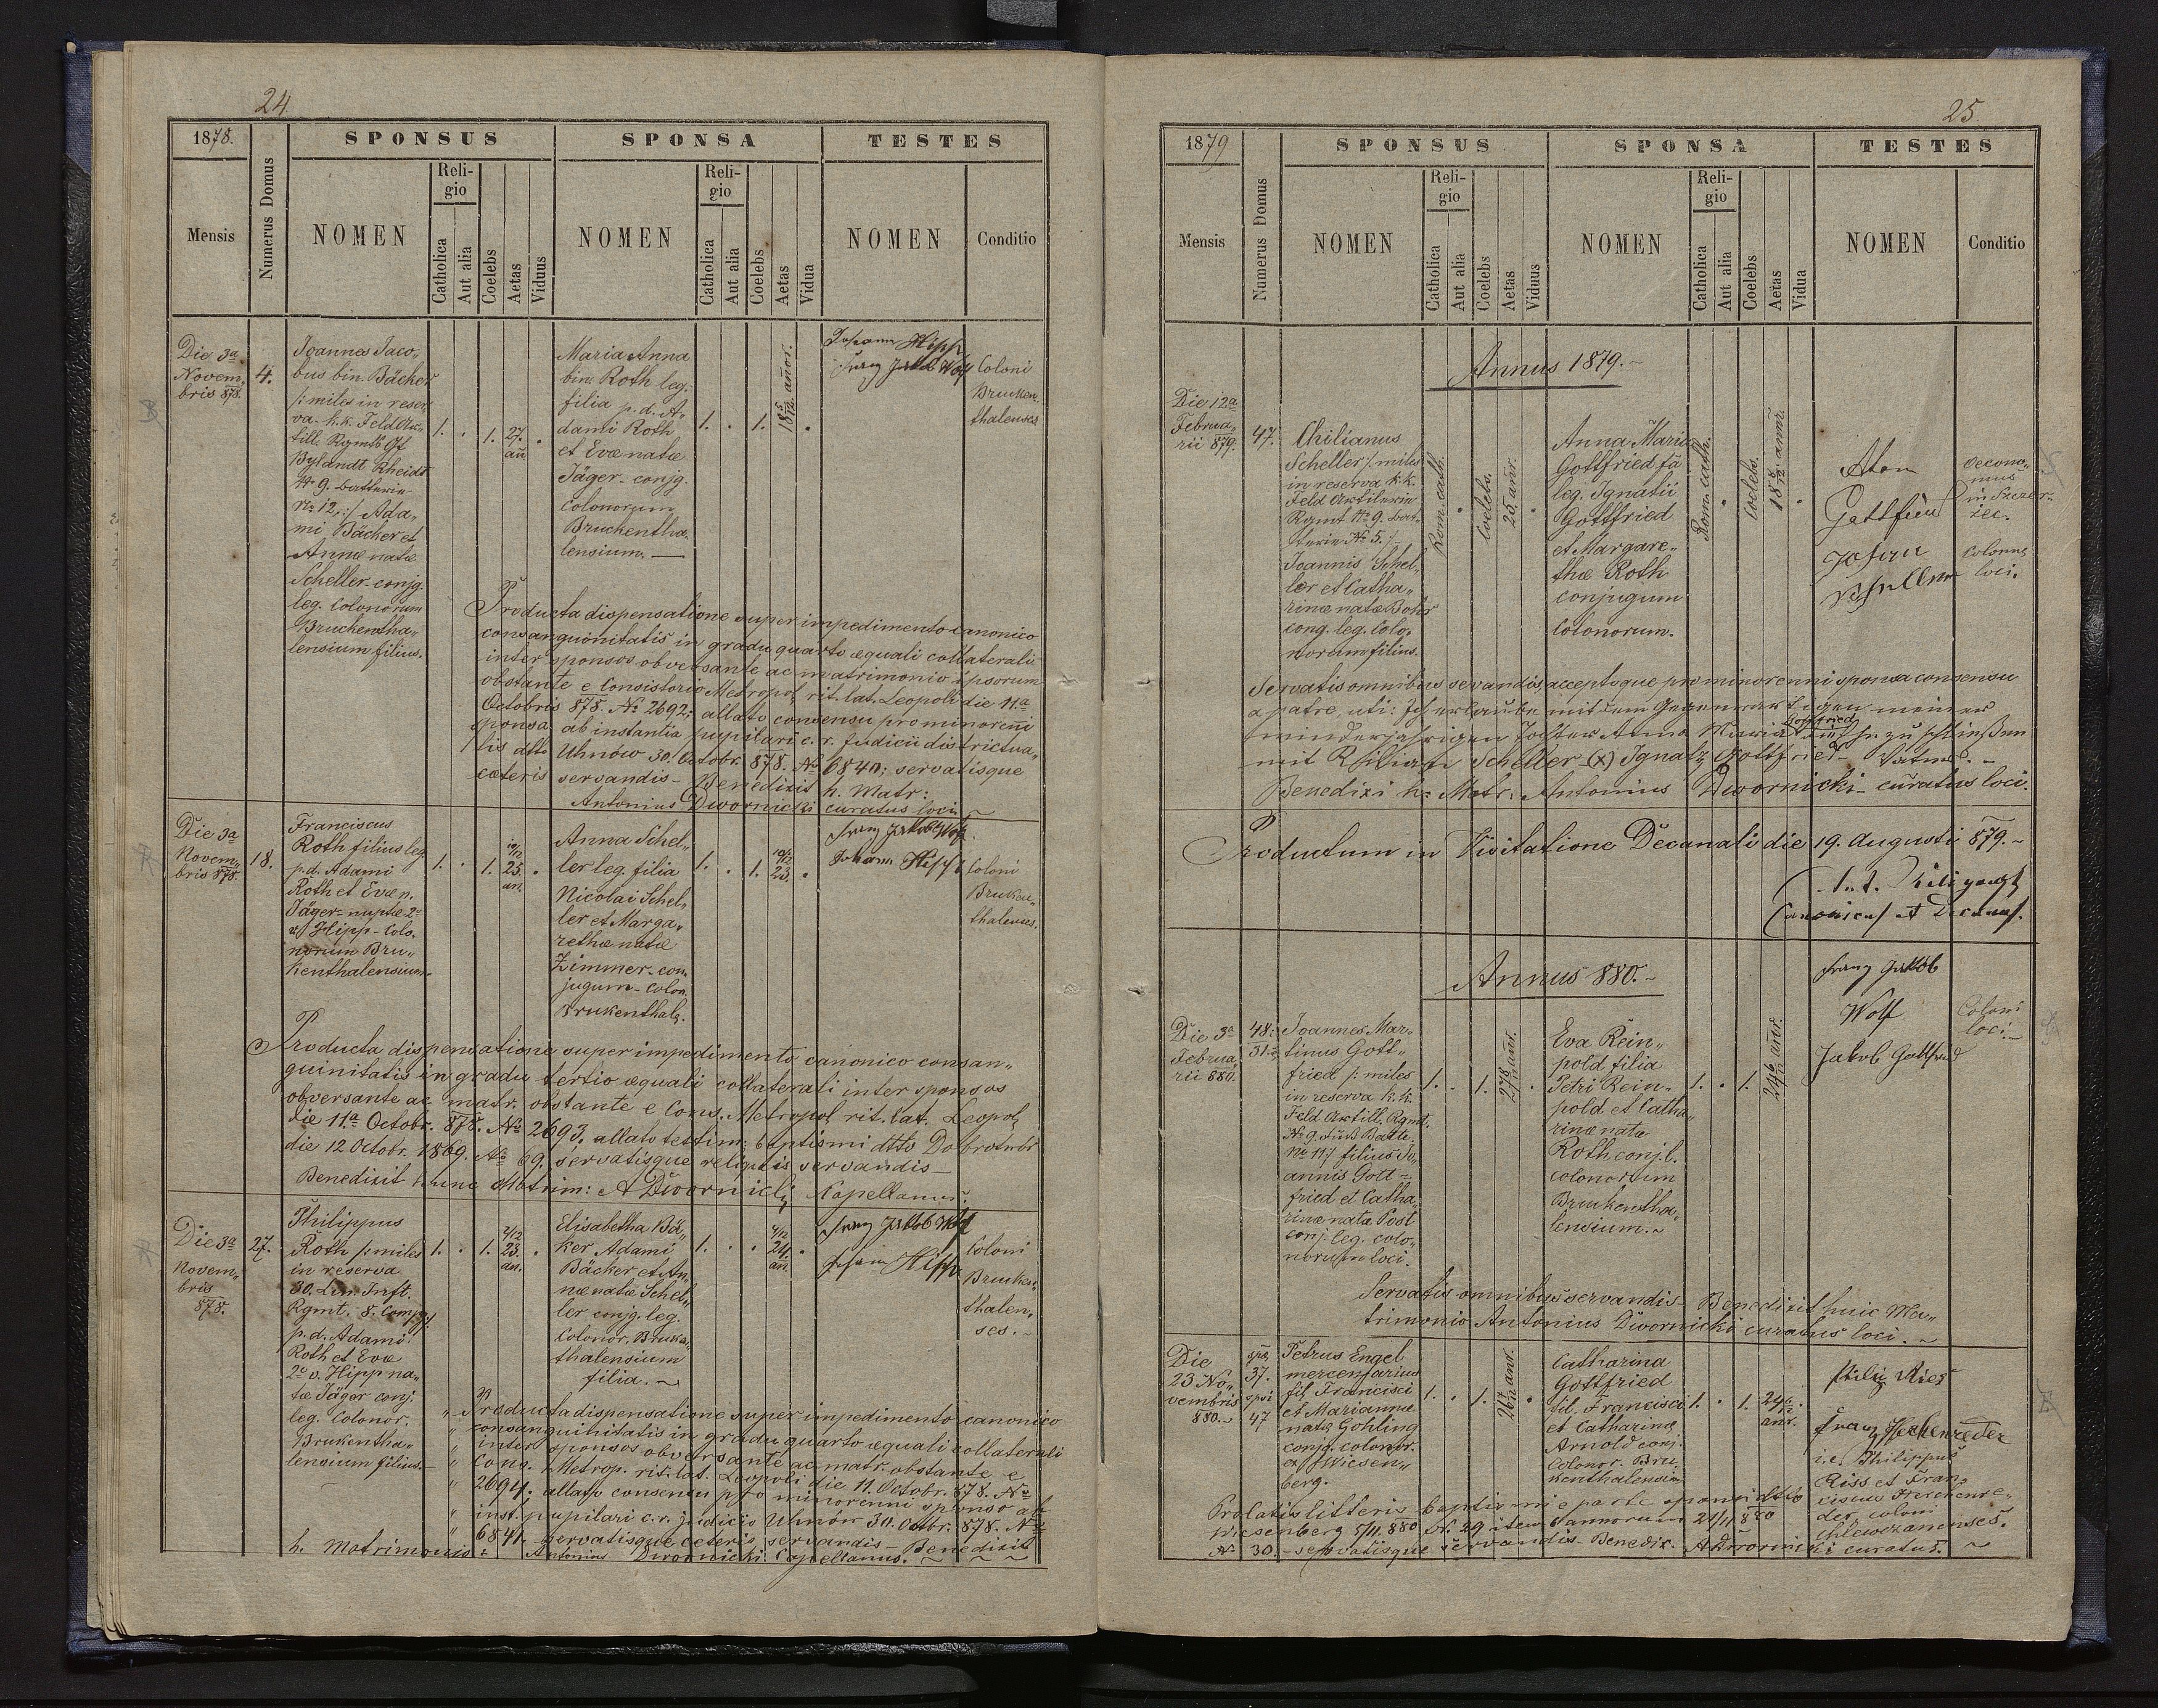 24.
1878.
Numerus Domus
SPONSUS
SPONSA
TESTES
Mensis
NOMEN
Religio
Catholica
Aut alia
Coelebs
Aetas
Viduus
NOMEN
Religio
Catholica
Aut alia
Coelebs
Aetas
Vidua
NOMEN
Conditio
Die 3a
Novem-
bris 878.
4.
Joannes Jaco-
bus bin. Bächer
/: miles in reser-
va k.k. Feld Ar-
till. Rgmts Gf
Bylandt Rheidt
N 9. Batterie
No 12, :/ Ada-
mi Bächer et
Annæ natæ
Scheller - conjg.
leg. Colonorum
Bruckentha-
lensium filius.
1. . 1. 27. an .
Maria Anna
bin. Roth leg.
filia p. d. A-
dami Roth
et Evæ natæ
Jäger - conjg.
Colonorum
Bruckentha-
lensium. —
1. . 1. 18 5/12 annor. .
Johann Hipp
Franz Jakob Wolf
Coloni
Brucken-
thalenses
Producta dispensatione super impedimento canonico
consanguinitatis in gradu quarto æquali collaterali
inter sponsos obversante ac matrimonio ipsorum
obstante e Consistorio Metropol. rit. lat. Leopoli die 11a
Octobris 878. No 2692; allato consensu pro minorenni
sponsa ab instantia pupilari c. r. Judicii districtua-
lis dtto Uhnów 30. Octobr. 878. No 6840; servatisque
cæteris servandis - Benedixit h. Matr:
Antonius Dwornicki curatus loci ~
Die 3a
Novem-
bris 878.
18.
Franciscus
Roth filius leg.
p. d. Adami
Roth et Evæ n.
Jäger - nuptæ 2o
v. Hipp - Colo-
norum Bru-
kenthalensium.
1. . 1. 10/12 25. an. .
Anna Schel-
ler leg. filia
Nicolai Schel-
ler et Marga-
rethæ natæ
Zimmer - con-
jugum - Colon.
Brukenthal.
1. . 1. 10/12 23. .
Franz Jakob Wolf
Johann Hipp
Coloni
Brucken-
thalenses.
Producta dispensatione super impedimento canonico consan-
guinitatis in gradu tertio æquali collaterali inter sponsos
obversante ac matr. obstante e Cons. Metropol. rit. lat. Leopol.
die 11a Octobr. 878. No 2693. allato testim: baptismi dtto Dobromir
die 12 Octobr. 1869. No 69. servatisque reliquis servandis —
Benedixit hunc Matrim: A Dwornicki Kapellanus.
Die 3a
Novem-
bris
878.
27.
Philippus
Roth /: miles
in reserva
30. Lin. Inft.
Rgmt. 8. Compg:/
p. d. Adami
Roth et Evæ
2o v. Hipp na-
tæ Jäger conj.
leg. Colonor.
Brukentha-
lensium filius. —
1. . 1. 2/12 23. an. .
Elisabetha Bä-
ker Adami
Bächer et An-
næ natæ Schel-
ler conjg. leg.
Colonor. Bruken-
thalensium
filia. ~
1. . . 4/12 24. an .
Franz Jakob Wolf
Johann Hipp
Coloni
Brucken-
thalen-
ses. -
Producta dispensatione super impedimento canonico
consanguinitatis in gradu quarto æquali collaterali
inter sponsos obversante ac matr. obstante e
Cons. Metrop. rit. lat. Leopoli die 11. Octobr. 878. No
2694. allato consensu pro minorenni sponso ab
inst. pupilari c. r. judicis Uhnów 30. Octbr. 878. No
6841. servatisque ceteris servandis - Benedixit
h. Matrimonio: Antonius Dwornicki Capellanus. ~ ~ ~
25
1879
Numerus Domus
SPONSUS
SPONSA
TESTES
Mensis
NOMEN
Religio
Catholica
Aut alia
Coelebs
Aetas
Viduus
NOMEN
Religio
Catholica
Aut alia
Coelebs
Aetas
Vidua
NOMEN
Conditio
Annus 1879. -
Die 12a
Februa-
rii 879.
47.
Chilianus
Scheller /: miles
in reserva k.k.
Feld Artilerie
Rgmt No 9. Bat-
terie No 5. :/
Joannis Schel-
ler et Catha-
rinæ natæ
cong. leg. Colo-
norum filius.
Rom. cath. . Coelebs. 25 anr. .
Anna Maria
Gottfried fa
leg. Ignatii
Gottfried
et Margare-
thæ Roth
conjugum
Colonorum.
Rom. cath. . Coelebs. 18 annr. .
Gottfried
Johann
Scheller
Oecono-
mus
in
Colonus
loci.
Servatis omnibus sevandis, acceptoque pro minorenni sponsa consensu
a patre, uti: Ich erlaube mit dem Gegenwärtigen meiner
minderjährigen Tochter Anna Maria Gottfried zu schließen
mit Kilian Scheller (x) Ignatz Gottfried Vatter. -
Benedixi h: Matr: Antonius Dwornicki - curatus loci.
Productum in Visitatione Decanali die 19. Augusti 879. ~
Canonicus et Decanus.
Annus 880. -
Die 3a
Februa-
rii 880.
48.
31.
Joannes Mar-
tinus Gott-
fried /: miles
in reserva k.k.
Feld Artill. Rgmt.
No 9. Batte.
No 11/ filius Jo-
annis Gott-
fried et Catha-
rinæ natæ Post
conj. leg. colo-
norum loci.
1. . 1. 27 8/12 annr. .
Eva Rein-
pold filia
Petri Rein-
pold et Catha-
rinæ natæ
Roth conj. l.
colonorum
Bruckentha-
lensium. ~
1. . 1. 24 6/12 annr.
Franz Jakob
Wolf
Jakob Gottfried
Coloni
loci. ~
Servatis omnibus servandis - Benedixit huic Ma-
trimonio Antonius Dwornicki curatus loci. ~
Die
23 No-
vembris
880. ~
spæ
37.
spsi
47
Petrus Engel
mercenarius
fil. Francisci
et Mariannæ
natæ Gohling
conj. colonor.
ex Wiesen-
berg.
1. . 1. 26 annr. .
Catharina
Gottfried
fil. Francisci
et Catharinæ
Arnold conj.
Colonor. Bru-
kenthalensium
1. . 1. 24 annr. .
Philip Ries
Franz Heckenreder
i. e. Philippus
Riss et Fran-
ciscus Heckenre-
der, coloni
Chlewczanenses.
Prolatis litteris baptismi e parte sponsi dtto
Wiesenberg 5/11. 880 N. 29 item bannorum 21/11 880
N. 30. - servatisque servandis Benedix. A Dwornicki curatus. ~